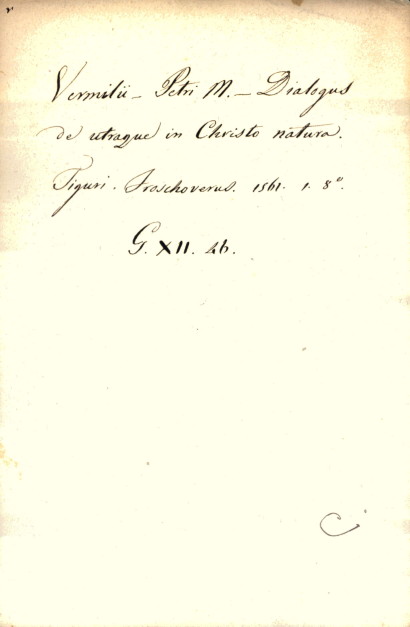 Vermilii - Petri M. - Dialogus
de utraque in Christo natura.
Tiguri. Froschoverus. 1561. 1. 8°.
G. XII. 46.
C